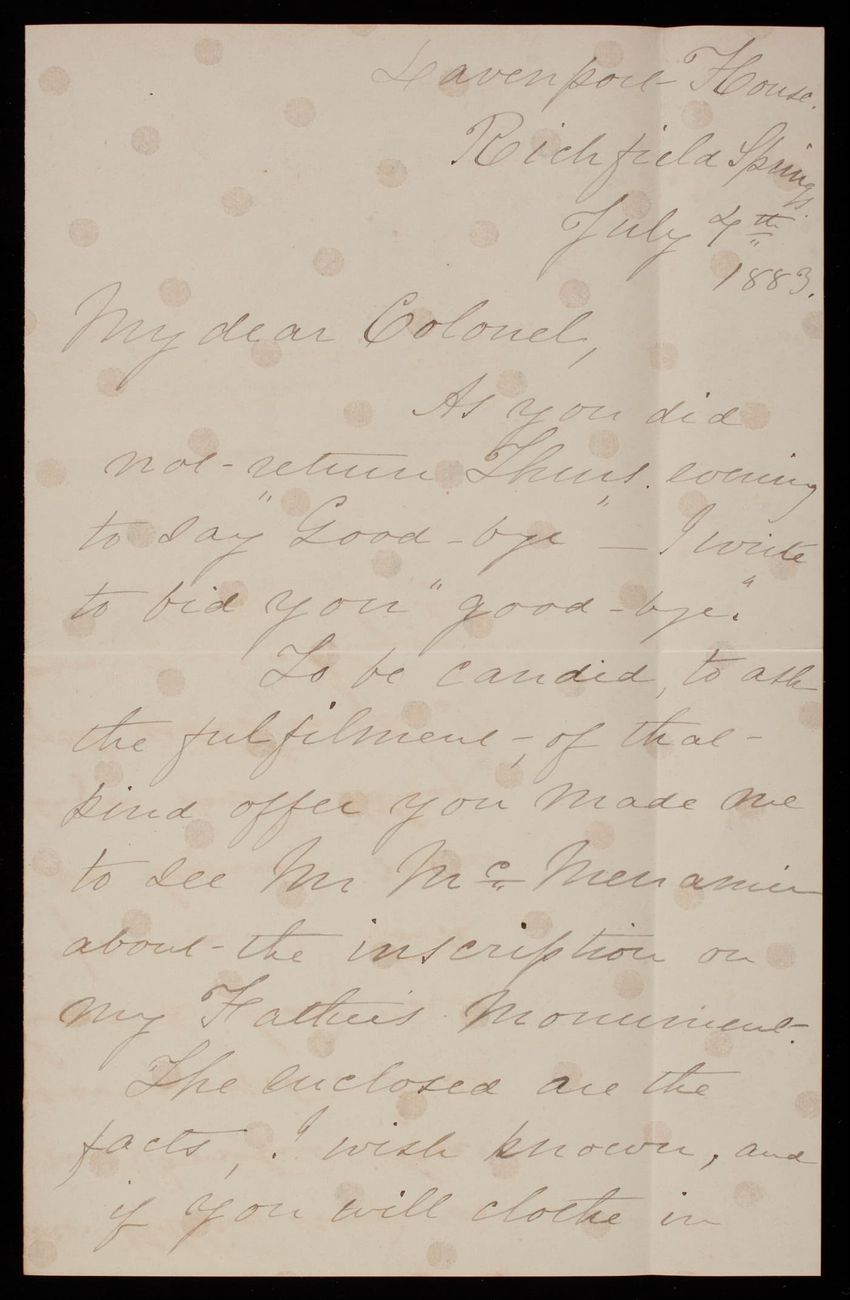 Davenport House.
Richfield Springs.
July 4th
1883.
My dear Colonel,
As you did
not return Thurs. evening
to say "Good-bye" — I write
to bid you "good-bye."
To be candid, to ask
the fulfilment, of that
kind offer you made me
to see Mr McMenamin
about the inscription on
my Father's Monument.
The enclosed are the
facts, I wish known, and
if you will clothe in